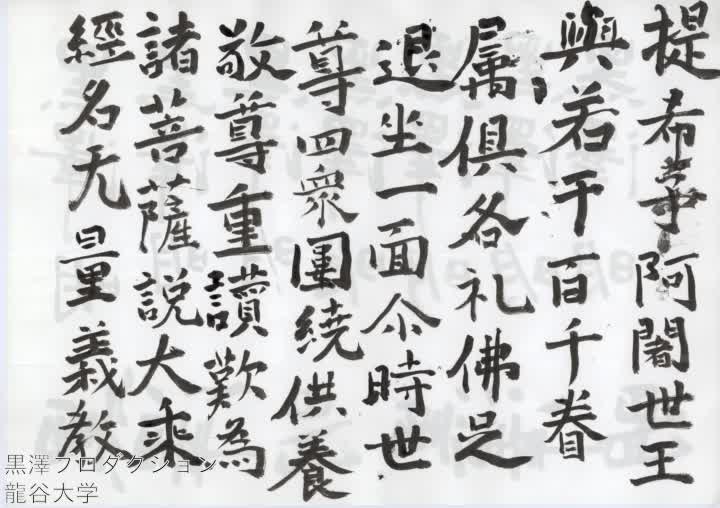 提希子阿闍世王
與若干百千眷
属俱各礼佛足
退坐一面尒時世
尊四衆圍繞供養
敬尊重讀歎為
諸菩薩説大乘
經名无量義教
黒澤プロダクション
龍谷大学